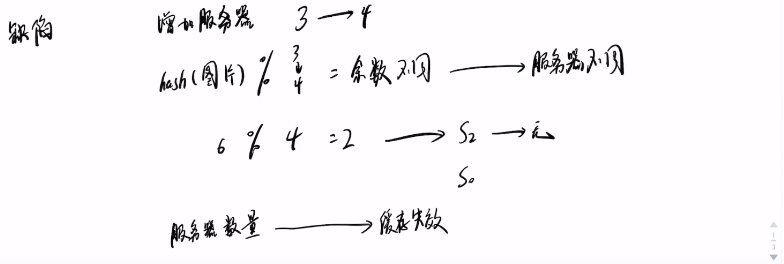 缺陷 增加服务器 3 → 4
hash(图片) % 3↓4 = 余数不同 → 服务器不同
6 % 4 = 2 → S2 → 无
S0
服务器数量 → 缓存失效